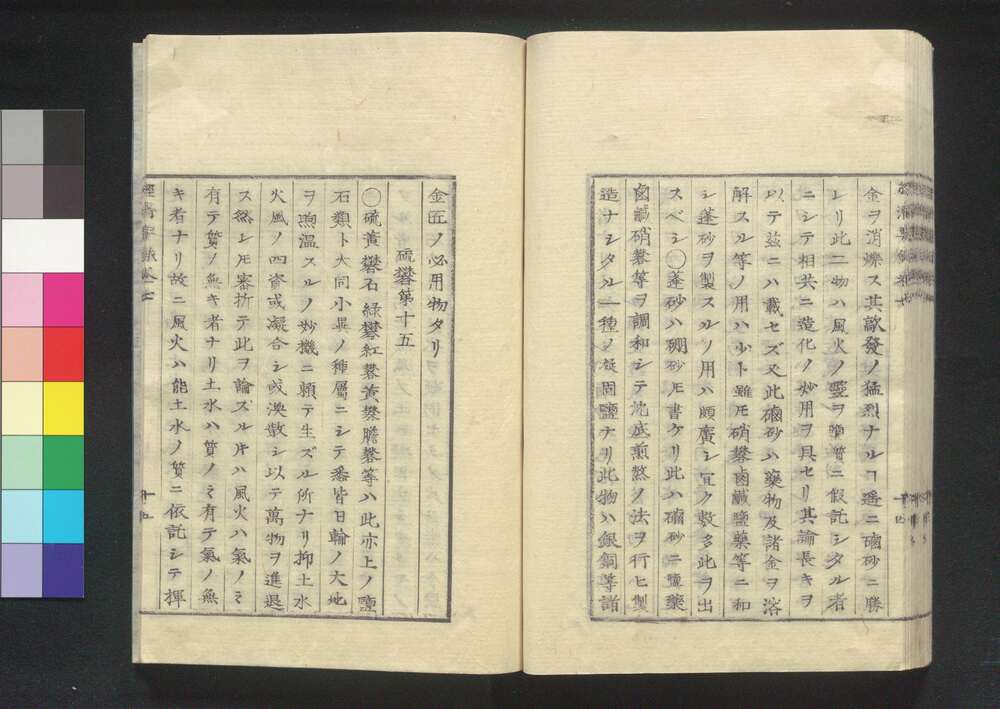 金ヲ消爍ス其歊發ノ猛烈ナルヿ遥ニ磠砂ニ勝
レリ此二物ハ風火ノ靈ヲ鹽質ニ假託シタル者
ニシテ相共ニ造化ノ妙用ヲ具セリ其論長キヲ
以テ茲ニハ載セズ又此磠砂ハ藥物及諸金ヲ溶
解スル等ノ用ハ少ト雖𪜈硝礬鹵鹹鹽藥等ニ和
シ蓬砂ヲ製スルノ用ハ頗廣シ宜ク數多此ヲ出
スベシ◯蓬砂ハ硼砂𪜈書ケリ此ハ磠砂ニ鹽藥
鹵鹹硝礬等ヲ調和シテ地底煎熬ノ法ヲ行ヒ製
造ナシタル一種ノ凝固鹽ナリ此物ハ銀銅等諸
金匠ノ必用物タリ
硫礬第十五
◯硫黄礬石緑礬紅礬黄礬膽礬等ハ此亦上ノ鹽
石類ト大同小異ノ種屬ニシテ悉皆日輪ノ大地
ヲ煦温スルノ妙機ニ頼テ生ズル所ナリ抑土水
火風ノ四資或凝合シ或渙散シ以テ萬物ヲ進退
ス然レ𪜈審折テ此ヲ論ズル片ハ風火ハ氣ノミ
有テ質ノ無キ者ナリ土水ハ質ノミ有テ氣ノ無
キ者ナリ故ニ風火ハ能土水ノ質ニ依託シテ揮